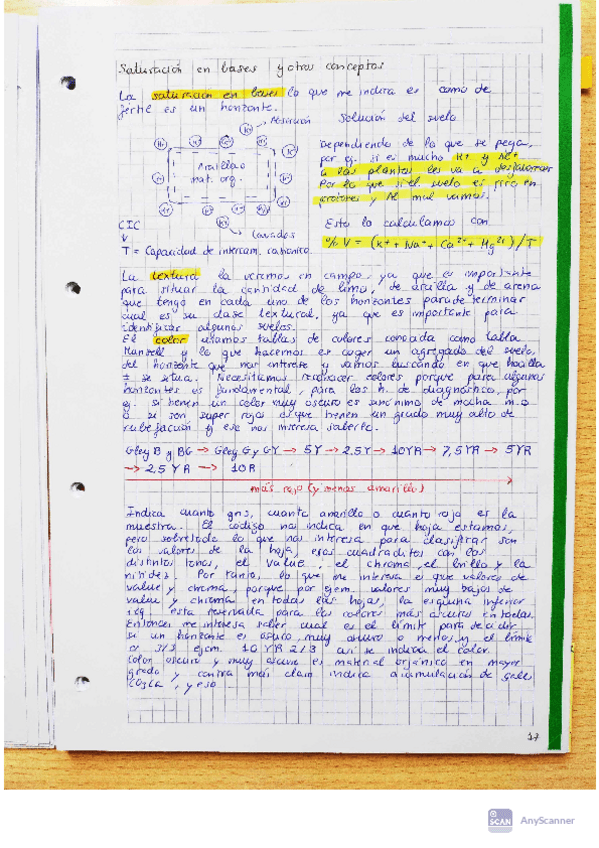 Saturación en bases y otros conceptos
La saturación en bases lo que me indica es como de
fertil es un horizonte.
Absorción
Solución del suelo
H+
Arcilla o
mat. org.
Lavados
CIC
V
T = Capacidad de intercam. cationico.
Dependiendo de lo que se pega,
por ej. si es mucho H+ y Al+
a las plantas les va a
Por lo que si el suelo es rico en
protones y Al mal vamos.
Esto lo calculamos con
% V = (K+ + Na+ + Ca2+ + Mg2+) / T
La textura la veremos en campo, ya que es importante
para situar la cantidad de limo, de arcilla y de arena
que tengo en cada uno de los horizontes para determinar
cual es su clase textural, ya que es importante para
identificar algunos suelos.
El color usamos tablas de colores conocida como tabla
Munsell y lo que hacemos es coger un agregado del suelo,
del horizonte que nos interese y vamos buscando en que hojilla
± se situa. Necesitamos reconocer colores porque para algunos
horizontes es fundamental, para los h. de diagnóstico, por
ej. si tienen un color muy oscuro es sinónimo de mucha m.o
o si son super rojos es que tienen un grado muy alto de
rubefacción y eso nos interesa saberlo.
Gley B y BG → Gley G y GY → 5Y → 2,5Y → 10YR → 7,5YR → 5YR
→ 2,5 YR → 10R
más rojo (y menos amarillo)
Indica cuanto gris, cuanto amarillo o cuanto rojo es la
muestra. El código nos indica en que hoja estamos,
pero sobretodo lo que nos interesa para clasificar son
los valores de la hoja, esos cuadraditos con los
distintos tonos, el value, el chroma, el brillo y la
nitidez. Por tanto, lo que me interesa es que valores de
value y chroma, porque por ejem. valores muy bajos de
value y chroma en todas las hojas, la esquina inferior
izq. esta reservada para los colores más oscuros en todas.
Entonces me interesa saber cual es el límite para decidir
si un horizonte es oscuro, muy oscuro o menos y el límite
es 3/3 ejem. 10 YR 2/3 así se indica el color.
Color oscuro y muy oscuro es material orgánico en mayor
grado y contra más claro indica acumulación de sales
CO3Ca, y eso
17
SCAN
AnyScanner